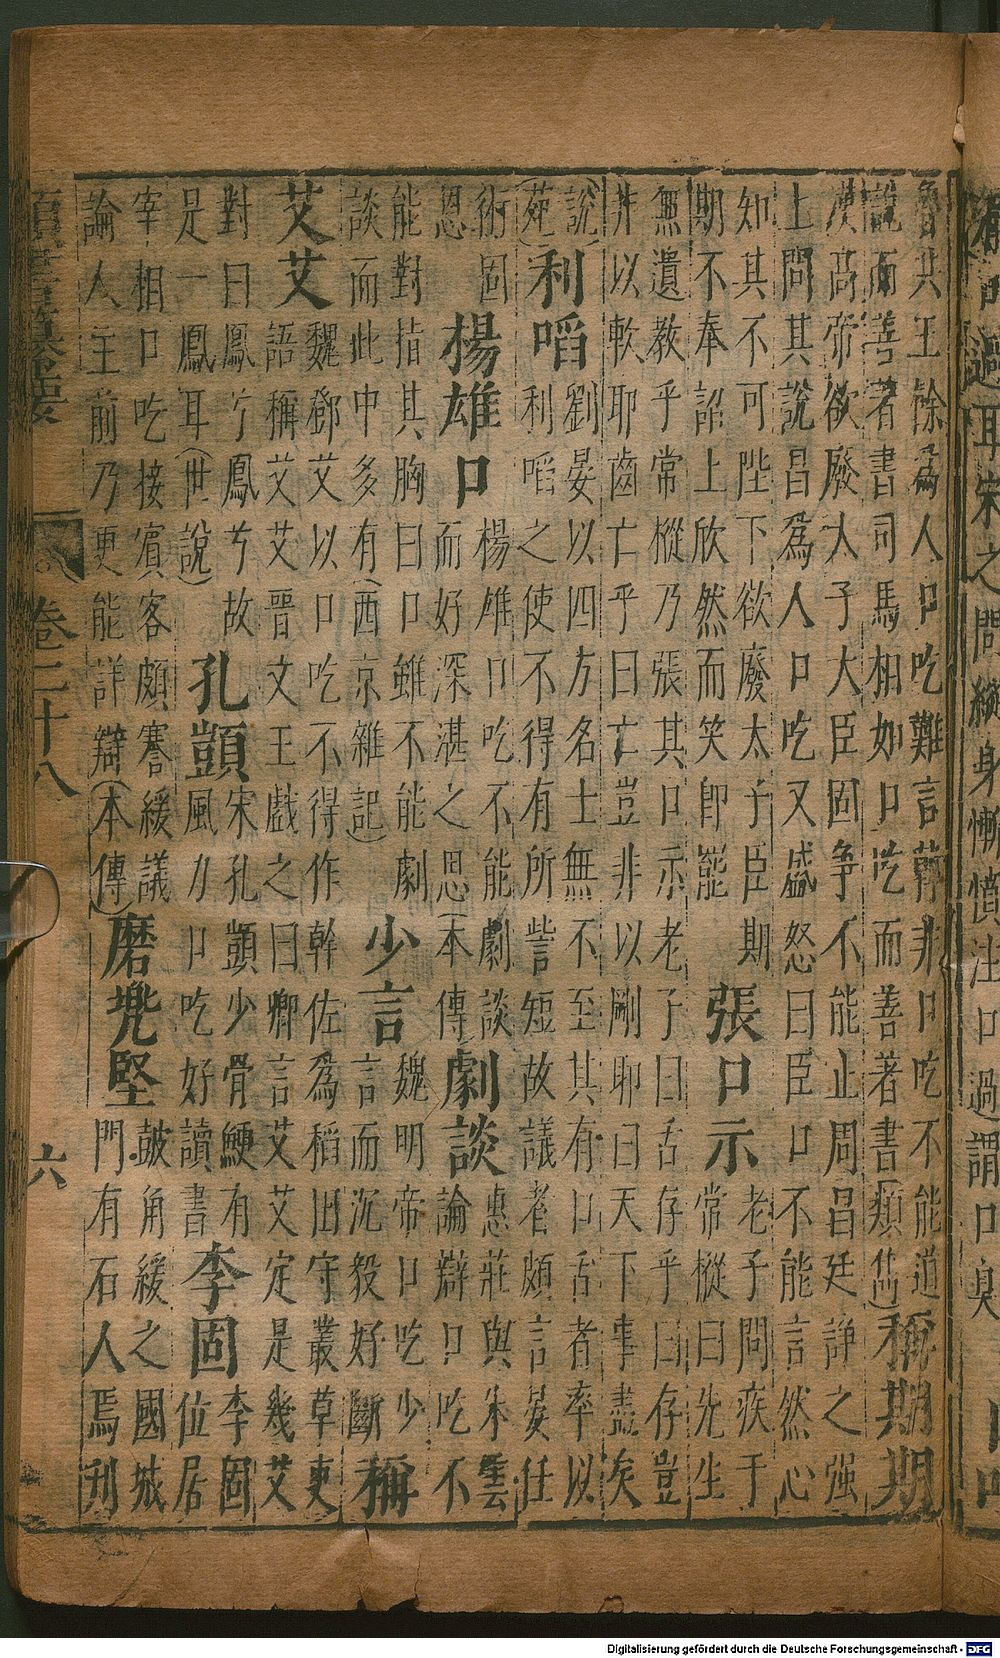 耳宋之問 身慚憤 口過謂口臭
魯共王餘為人口吃難言韓非口吃不能道
說而善著書司馬相如口吃而善著書(類雋)
稱期期
漢高帝欲廢太子大臣固爭不能止周昌廷諍之强
上問其說昌為人口吃又盛怒曰臣口不能言然心
知其不可陛下欲廢太子臣期
期不奉詔上欣然而笑即罷
張口示
老子問疾于
常樅曰先生
無遺教乎常樅乃張其口示老子曰舌存乎曰存豈
非以軟耶齒亡乎曰亡豈非以剛耶曰天下事盡矣
(說
苑)
利㗖
劉晏以四方名士無不至其有口舌者率以
利㗖之使不得有所訾短故議者頗言晏任
術固
恩
楊雄口
楊雄口吃不能劇談
而好深湛之思(本傳)
劇談
惠莊與朱雲
論辯口吃不
能對指其胸曰口雖不能劇
談而此中多有(西京雜記)
少言
魏明帝口吃少
言而沉毅好斷
稱
艾艾
魏鄧艾以口吃不得作幹佐為稻田守叢草吏
語稱艾艾晉文王戲之曰卿言艾艾定是幾艾
對曰鳳兮鳳兮故
是一鳳耳(世說)
孔顗
宋孔顗少骨鯁有
風力口吃好讀書
李固
李固
位居
宰相口吃接賓客頗蹇緩議
論人主前乃更能詳辯(本傳)
磨兠堅
皷角緩之國城
門有石人焉刋
卷二十八 六
Digitalisierung gefördert durch die Deutsche Forschungsgemeinschaft - DFG